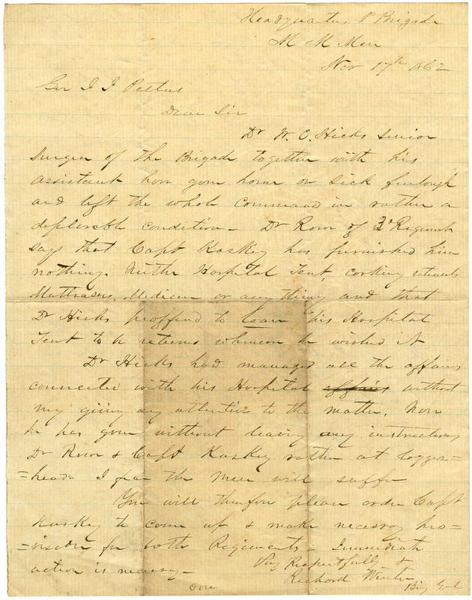 Headquarters 1st Brigade
M M Men
Nov 17th 1862
Gov J J Pettus
Dear Sir
Dr W. C. Hicks Senior
Surgeon of the Brigade together with his
assistant have gone home on Sick furlough
and left the whole command in rather a
deplorable condition - Dr Row of 3d Regiment
says that Capt Kaskey has furnished him
nothing. Neither Hospital Tent, cooking utensils
Mattrasses, Medicine or anything and that
Dr Hicks proffered to loan his Hospital
Tent to be returned whenever he wished it
Dr Hicks had managed all the affairs
connected with his Hospital affairs without
my giving any attention to the matter. Now
he has gone without leaving any instructions
Dr Row & Capt Kaskey rather at logger=
=heads I fear the men will suffer
You will therefore please order Capt
Kaskey to come up & make necessary pro=
=vision for both Regiments - Immediate
action is necessary -
Very Respectfully &
Richard Winter
Brig Genl
Over